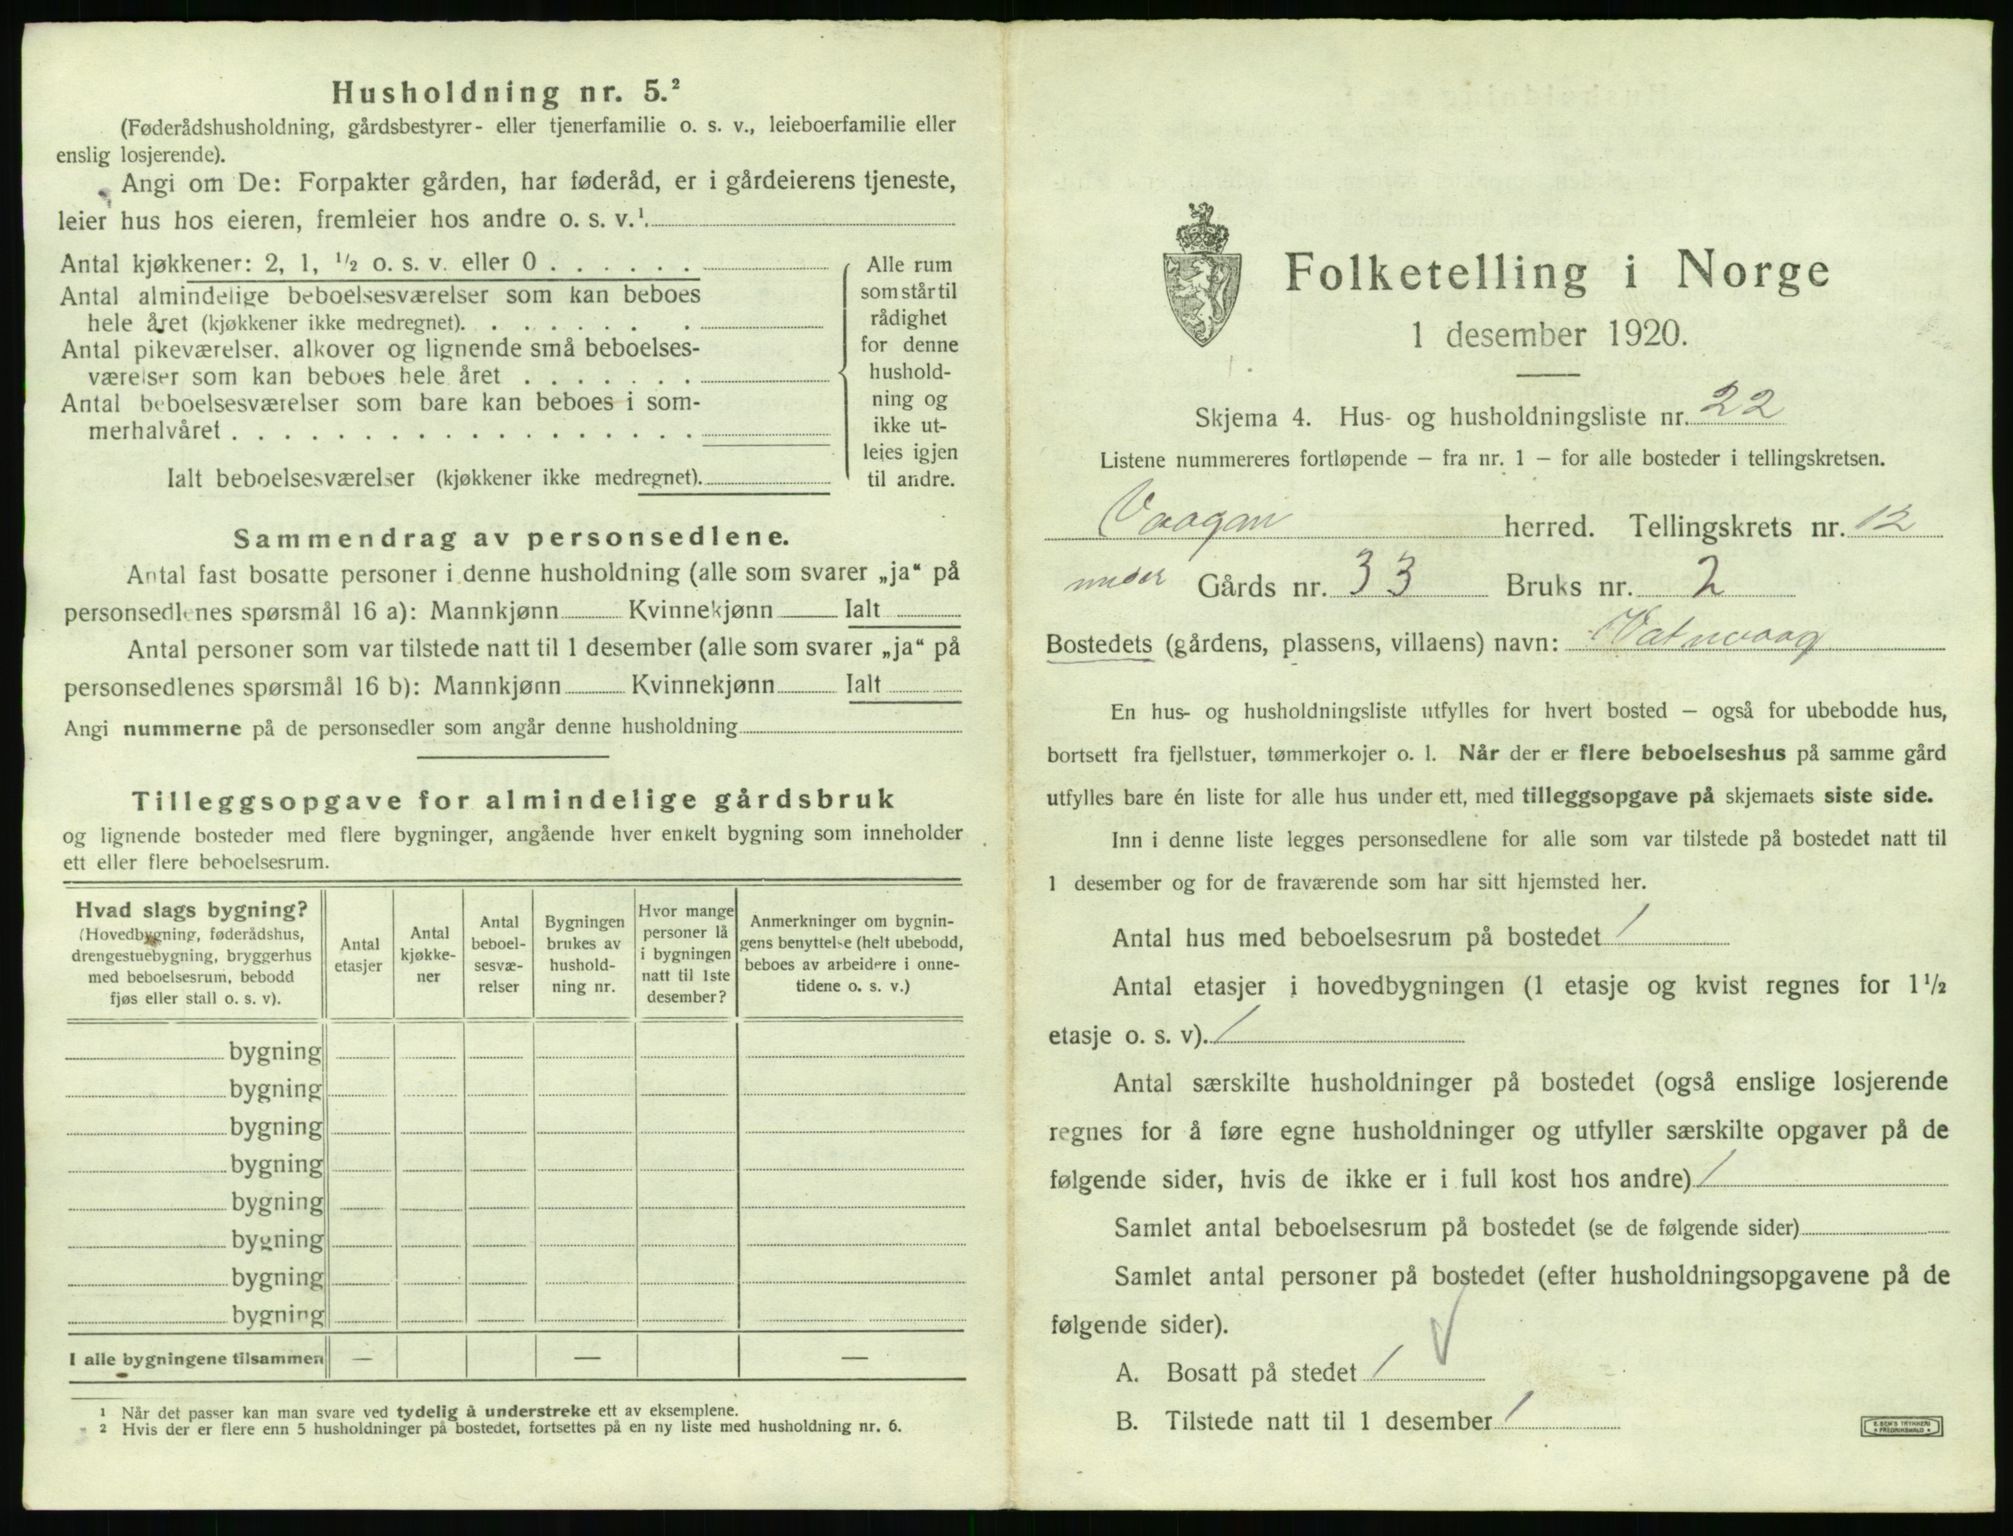 Husholdning nr. 5.²
(Føderådshusholdning, gårdsbestyrer- eller tjenerfamilie o. s. v., leieboerfamilie eller
enslig losjerende).
Angi om De: Forpakter gården, har føderåd, er i gårdeierens tjeneste,
leier hus hos eieren, fremleier hos andre o. s. v.¹
Antal kjøkkener: 2, 1, ½ o. s. v. eller 0 . . . . . .
Antal almindelige beboelsesværelser som kan beboes
hele året (kjøkkener ikke medregnet). . . . . . . .
Antal pikeværelser, alkover og lignende små beboelses-
værelser som kan beboes hele året . . . . . . .
Antal beboelsesværelser som bare kan beboes i som-
merhalvåret . . . . . . . . . . . . . . . . . .
Ialt beboelsesværelser (kjøkkener ikke medregnet).
Alle rum
som står til
rådighet
for denne
hushold-
ning og
ikke ut-
leies igjen
til andre.
Sammendrag av personsedlene.
Antal fast bosatte personer i denne husholdning (alle som svarer „ja“ på
personsedlenes spørsmål 16 a): Mannkjønn Kvinnekjønn Ialt
Antal personer som var tilstede natt til 1 desember (alle som svarer „ja“ på
personsedlenes spørsmål 16 b): Mannkjønn Kvinnekjønn Ialt
Angi nummerne på de personsedler som angår denne husholdning
Tilleggsopgave for almindelige gårdsbruk
og lignende bosteder med flere bygninger, angående hver enkelt bygning som inneholder
ett eller flere beboelsesrum.
Hvad slags bygning?
(Hovedbygning, føderådshus,
drengestuebygning, bryggerhus
med beboelsesrum, bebodd
fjøs eller stall o. s. v).
Antal
etasjer
Antal
kjøkke-
ner
Antal
beboel-
sesvæ-
relser
Bygningen
brukes av
hushold-
ning nr.
Hvor mange
personer lå
i bygningen
natt til 1ste
desember?
Anmerkninger om bygnin-
gens benyttelse (helt ubebodd,
beboes av arbeidere i onne-
tidene o. s. v.)
bygning
bygning
bygning
bygning
bygning
bygning
bygning
bygning
I alle bygningene tilsammen — — —
¹ Når det passer kan man svare ved tydelig å understreke ett av eksemplene.
² Hvis der er flere enn 5 husholdninger på bostedet, fortsettes på en ny liste med husholdning nr. 6.
Folketelling i Norge
1 desember 1920.
Skjema 4. Hus- og husholdningsliste nr. 22
Listene nummereres fortløpende – fra nr. 1 – for alle bosteder i tellingskretsen.
Vaagan herred. Tellingskrets nr. 12
under Gårds nr. 33 Bruks nr. 2
Bostedets (gårdens, plassens, villaens) navn: Vatnvaag
En hus- og husholdningsliste utfylles for hvert bosted – også for ubebodde hus,
bortsett fra fjellstuer, tømmerkojer o. l. Når der er flere beboelseshus på samme gård
utfylles bare én liste for alle hus under ett, med tilleggsopgave på skjemaets siste side.
Inn i denne liste legges personsedlene for alle som var tilstede på bostedet natt til
1 desember og for de fraværende som har sitt hjemsted her.
Antal hus med beboelsesrum på bostedet 1
Antal etasjer i hovedbygningen (1 etasje og kvist regnes for 1½
etasje o. s. v). 1
Antal særskilte husholdninger på bostedet (også enslige losjerende
regnes for å føre egne husholdninger og utfyller særskilte opgaver på de
følgende sider, hvis de ikke er i full kost hos andre) 1
Samlet antal beboelsesrum på bostedet (se de følgende sider)
Samlet antal personer på bostedet (efter husholdningsopgavene på de
følgende sider).
A. Bosatt på stedet 1
B. Tilstede natt til 1 desember 1